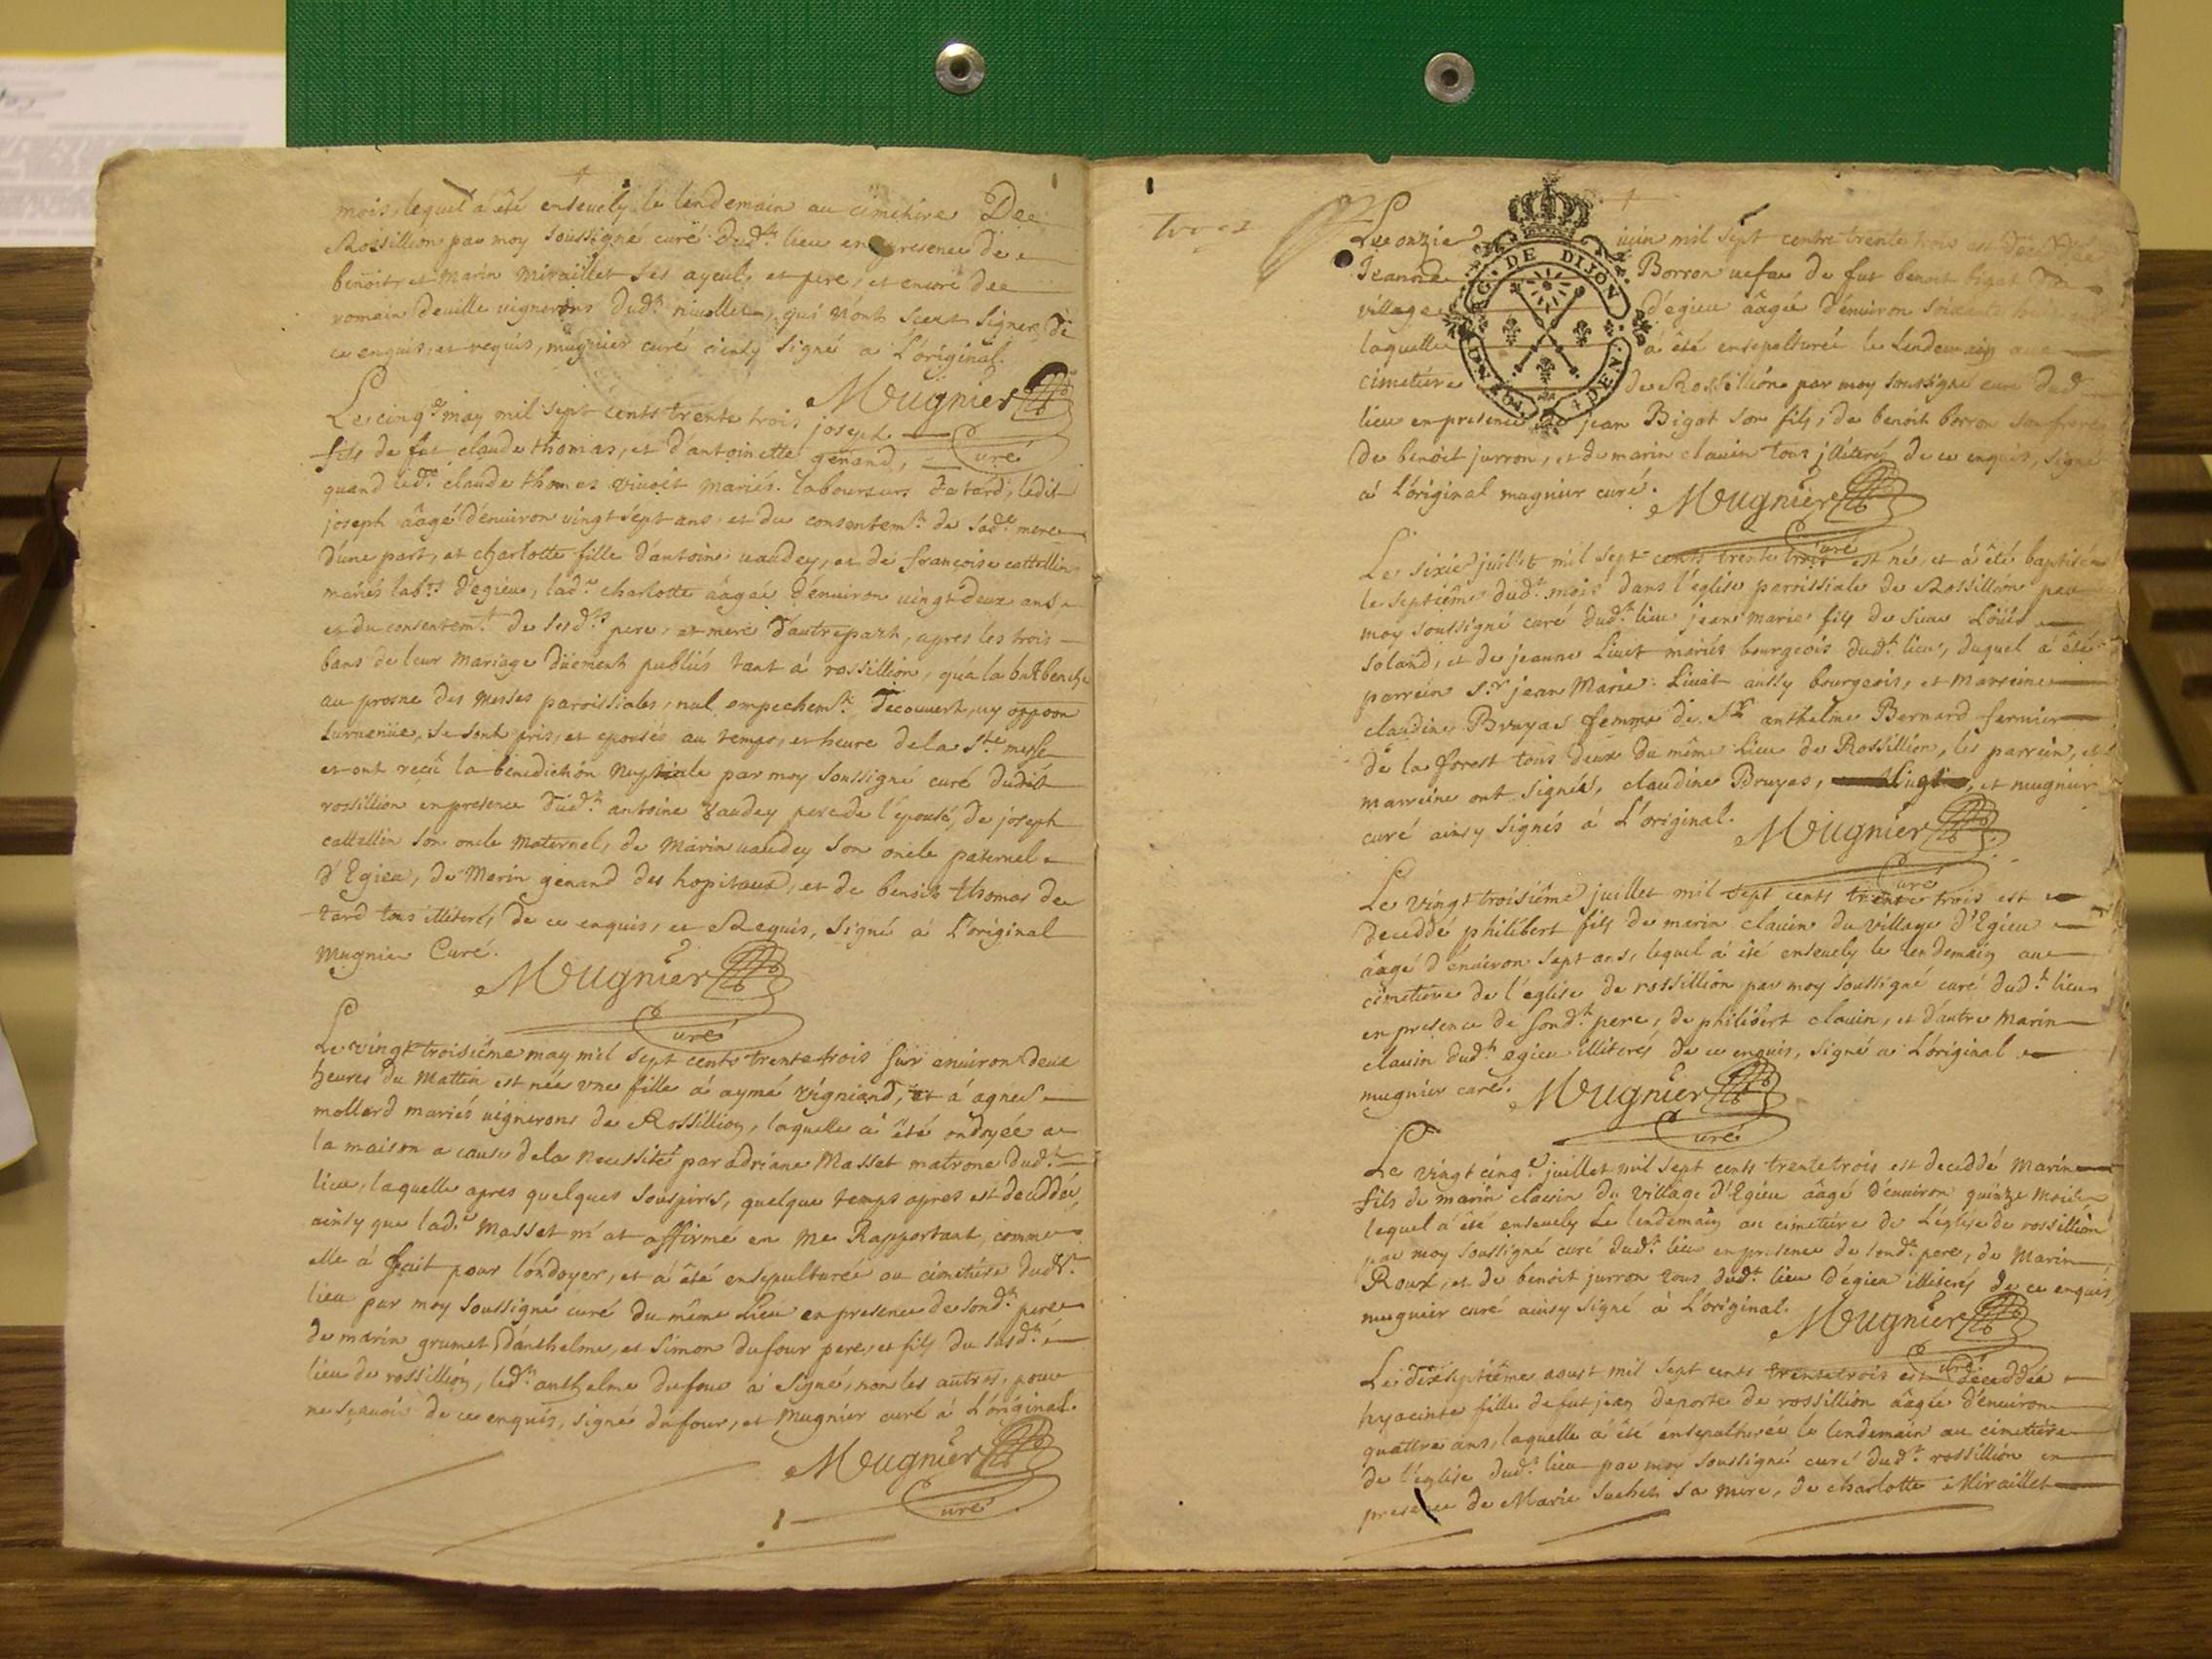 mois, lequel a été ensevely le lendemain au cimetiere De
Rossillion par moy soussigné curé dud.t lieu en presence de
benoit et marin miraillet ses ayeul, et pere, et encore de
romain deville vignerons dud.t nivollet, qui n'ont sceut signer, de
ce enquis, et requis, mugnier curé signé a L'original.
Mugnier
Curé
Le cinq.e may mil sept cents trente trois joseph
fils de fut claude thomas, et d'antoinette genand,
quand led.t claude thomas vivoit mariés laboureurs de tard, ledit
joseph âagé d'environ vingt sept ans et du consentem.t de sad.e mere
d'une part, et charlotte fille d'antoine vaudey, et de françoise cattellin
mariés lab.rs d'egieu, lad.e charlotte âagée d'environ vingt deux ans
et du consentem.t de sesd.ts pere, et mere d'autre part, apres les trois
bans de leur mariage düement publiés tant á rossillion, qu'a la
au prosne des messes paroissiales, nul empechem.t decouvert, ny oppoon
survenüe, se sont pris, et epousés au temps, et heure de la s.te messe
et ont reçû la benediction nuptiale par moy soussigné curé dudit
rossillion en presence dud.t antoine vaudey pere de l'epouse, de joseph
cattellin son oncle maternel, de marin vaudey son oncle paternel
d'Egieu, de marin genand des hopitaux, et de benoit thomas de
tard tous illiterés, de ce enquis, et Requis, signé á L'original
mugnier Curé.
Mugnier
Curé
Le vingt troisiéme may mil sept cents trente trois sur environ deux
heures du mattin est née une fille á aymé vigniand, et á agnes
mollard mariés vignerons de Rossillion, laquelle á été ondoyée a
la maison a cause de la necessité par adriane Masset matrone dud.t
lieu, laquelle apres quelques souspirs, quelque temps apres est deceddée
ainsy que lad.e Masset m'at affirmé en me Rapportant, comme
elle á fait pour l'ondoyer, et á été ensepulturée au cimetiére dud.t
lieu par moy soussigné curé du même Lieu en presence de sond.t pere
de marin grumet d'anthelme, et simon dufour pere, et fils du susd.t
lieu de rossillion, led.t anthelme dufour á signé, non les autres, pour
ne sçavoir de ce enquis, signé dufour, et mugnier curé á L'original.
Mugnier
Curé
Le onzie juin mil sept cents trente trois est
Jeanne Borron vefve de fut benoit bigat
village d'egieu âagée d'environ
laquelle á été ensepulturée le lendemain au
cimetiére de Rossillion par moy soussigné curé dud.t
lieu en presence de jean Bigat son fils, de benoit borron son frere
de benoit jurron, et de marin clavin tous illiterés de ce enquis, signé
á L'original mugnier curé.
GEN. DE DIJON
Mugnier
Curé
Le sixie juillet mil sept cents trente trois est né, et á été baptisé
le septiéme dud.t mois dans l'eglise parrissiale de Rossillion par
moy soussigné curé dud.t lieu jean marie fils de sieur Loüis
soland, et de jeanne Livet mariés bourgeois dud.t lieu, duquel á été
parrein s.r jean Marie Livet aussy bourgeois, et marreine
claudine Bruyas femme de s.r anthelme Bernard fermier
de la forest tous deux du même Lieu de Rossillion, les parrein, et
marreine ont signés, claudine Bruyas, et mugnier
curé ainsy signés á L'original.
Mugnier
Curé
Le vingt troisiéme juillet mil sept cents trente trois est
deceddé philibert fils de marin clavin du village d'Egieu
âagé d'environ sept ans, lequel á été ensevely le lendemain au
cimetiere de l'eglise de rossillion par moy soussigné curé dud.t lieu
en presence de sond.t pere, de philibert clavin, et d'autre marin
clavin dud.t egieu illiterés de ce enquis, signé a L'original
mugnier curé.
Mugnier
Curé
Le vingt cinq.e juillet mil sept cents trente trois est deceddé marin
fils de marin clavin du village d'Egieu âagé d'environ quinze mois
lequel á été ensevely Le lendemain au cimetiére de L'eglise de rossillion
par moy soussigné curé dud.t lieu en presence de sond.t pere, de marin
Roux, et de benoit jurron tous dud.t lieu d'égieu illiterés de ce enquis,
mugnier curé ainsy signé á L'original.
Mugnier
Curé
Le dixseptiéme aoust mil sept cents trente trois est deceddée
hyacinte fille de fut jean deporte de rossillion âagée d'environ
quattre ans, laquelle á été ensepulturée le lendemain au cimetiére
de l'eglise dud.t lieu par moy soussigné curé dud.t rossillion en
presence de Marie suchet sa mere, de charlotte Miraillet